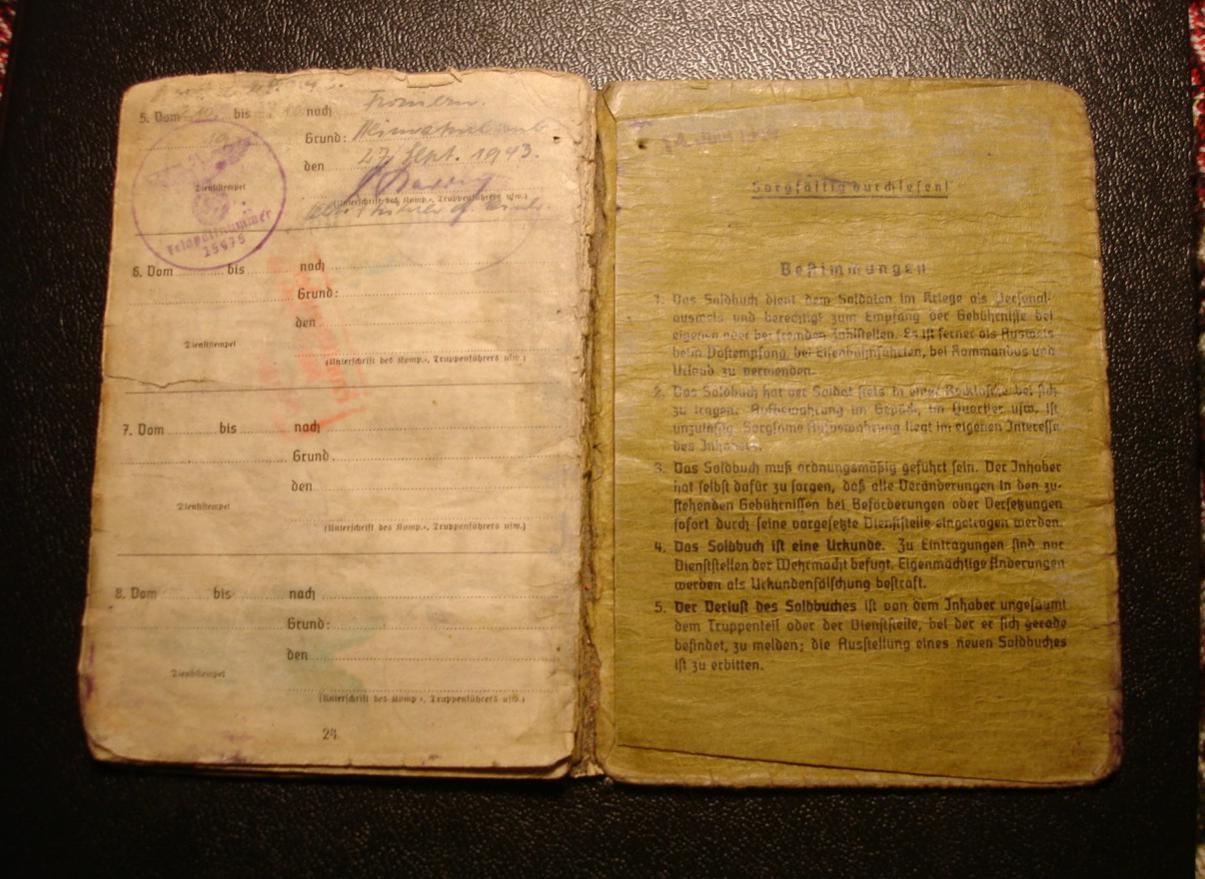 5. Vom bis nach
Grund:
den 27. Sept. 1943.
Dienststempel
(Unterschrift des Komp.-, Truppenführers usw.)
Feldpostnummer
15975
6. Vom bis nach
Grund:
den
Dienststempel
(Unterschrift des Komp.-, Truppenführers usw.)
7. Vom bis nach
Grund
den
Dienststempel
(Unterschrift des Komp.-, Truppenführers usw.)
8. Vom bis nach
Grund:
den
Dienststempel
(Unterschrift des Komp.-, Truppenführers usw.)
24
Sorgfältig durchlesen!
Bestimmungen
1. Das Soldbuch dient dem Soldaten im Kriege als Personal-
ausweis und berechtigt zum Empfang der Gebührnisse bei
eigenen oder bei fremden Zahlstellen. Es ist ferner als Ausweis
beim Postempfang, bei Eisenbahnfahrten, bei Kommandos und
Urlaub zu verwenden.
2. Das Soldbuch hat der Soldat stets in einer Rocktasche bei sich
zu tragen. Aufbewahrung im Gepäck, im Quartier usw. ist
unzulässig. Sorgsame Aufbewahrung liegt im eigenen Interesse
des Inhabers.
3. Das Soldbuch muß ordnungsmäßig geführt sein. Der Inhaber
hat selbst dafür zu sorgen, daß alle Veränderungen in den zu-
stehenden Gebührnissen bei Beförderungen oder Versetzungen
sofort durch seine vorgesetzte Dienststelle eingetragen werden.
4. Das Soldbuch ist eine Urkunde. Zu Eintragungen sind nur
Dienststellen der Wehrmacht befugt. Eigenmächtige Änderungen
werden als Urkundenfälschung bestraft.
5. Der Verlust des Soldbuches ist von dem Inhaber ungesäumt
dem Truppenteil oder der Dienststelle, bei der er sich gerade
befindet, zu melden; die Ausstellung eines neuen Soldbuches
ist zu erbitten.